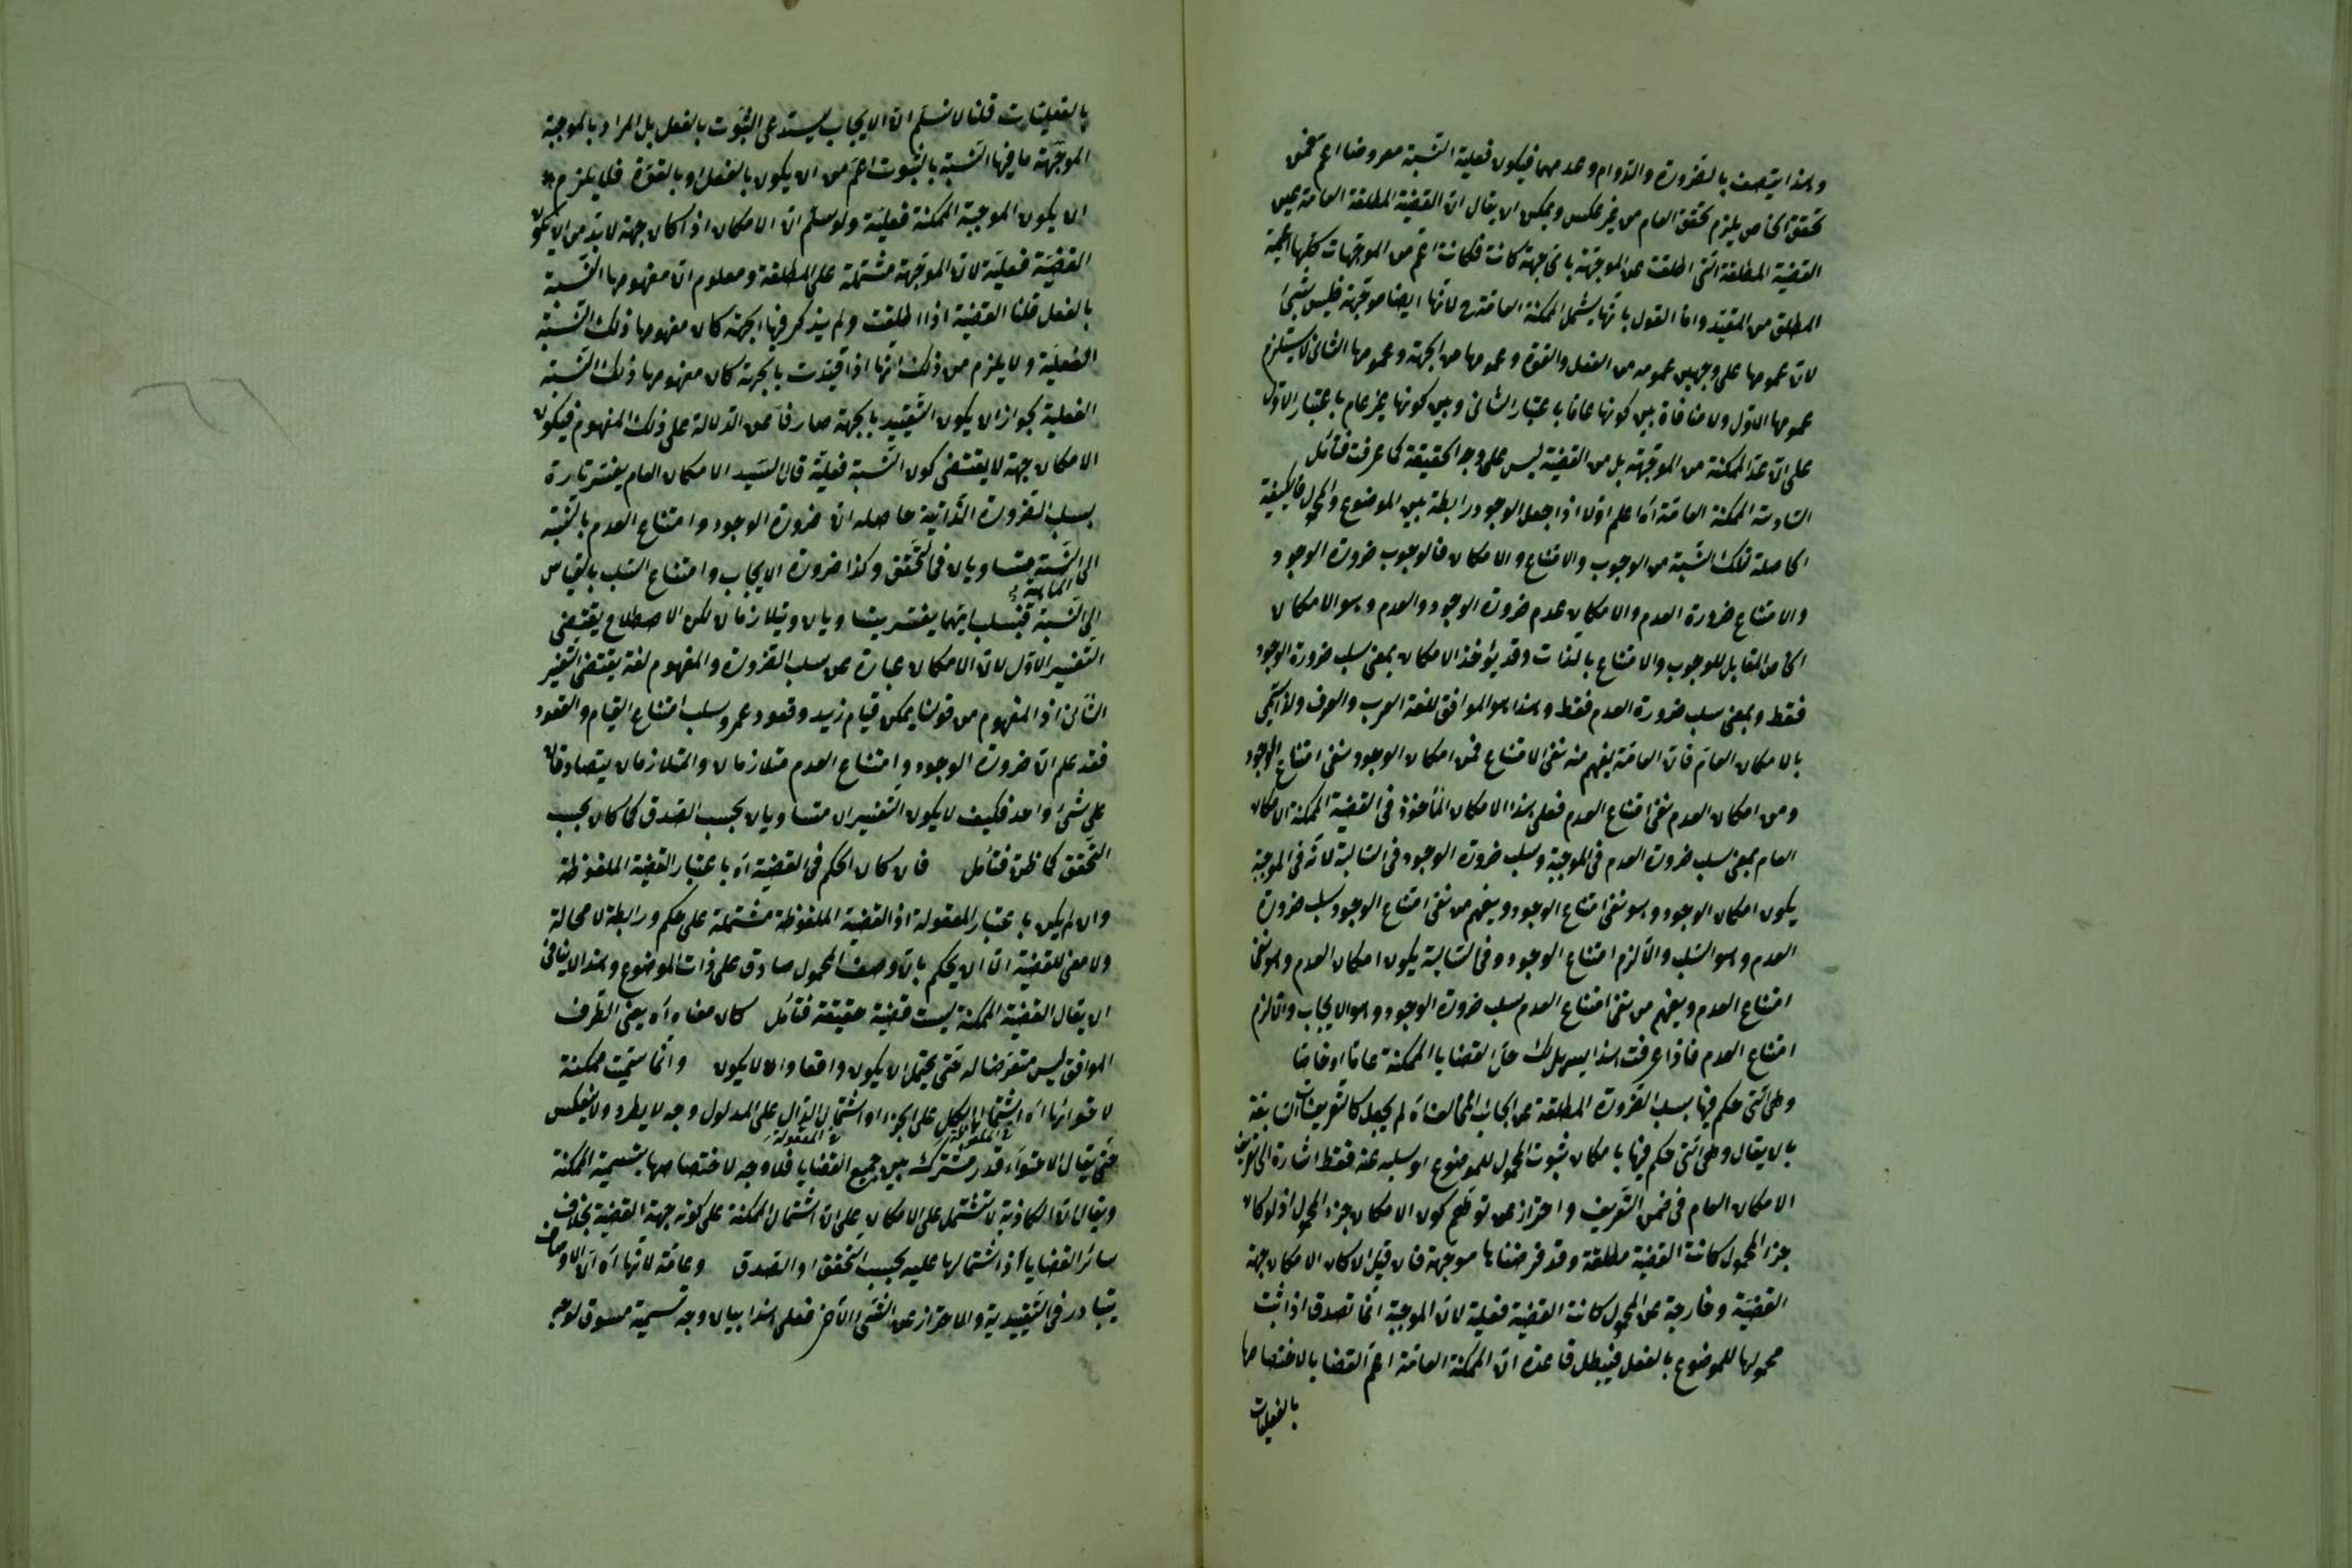 وهذا يتصف بالضرورة والدوام وعدمهما فيكون فعلية النسبة معروضا اعم فمن
تحقق الخاص يلزم تحقق العام من غير عكس ويمكن ان يقال ان القضية المطلقة العامة عين
القضية المطلقة التى اطلقت عن الموجهة باى جهة كانت فكانت اعم من الموجهات كلها اعمية
المطلق من المقيد واما القول بانها يشمل الممكنة العامة ح لانها ايضا موجهة فليس بشئ
لان عمومها على وجهين عمومه من الفعل والقوة وعمومها من الجهة وعمومها الثانى لا يستلزم
عمومها الاول ولا منافاة بين كونها عاما باعتبار الثانى وبين كونها غير عام باعتبار الاول
على ان عد الممكنة من الموجهة بل من القضية ليس على وجه الحقيقة كما عرفت فتأمل
السادسة الممكنة العامة اه اعلم اولا اذا جعل الوجود رابطة بين الموضوع والمحمول فالكيفية
الحاصلة لتلك النسبة من الوجوب والامتناع والامكان فالوجوب ضرورة الوجود
والامتناع ضرورة العدم والامكان عدم ضرورة الوجود والعدم وهو الامكان
الخاص المقابل للوجوب والامتناع بالذات وقد يؤخذ الامكان بمعنى سلب ضرورة الوجود
فقط وبمعنى سلب ضرورة العدم فقط وهذا هو الموافق للغة العرب والعرف ولذا سمى
بالامكان العام فان العامة يفهم منه نفى الامتناع فمن امكان الوجود نفى امتناع الوجود
ومن امكان العدم نفى امتناع العدم فعلى هذا الامكان المأخوذ فى القضية الممكنة الامكان
العام بمعنى سلب ضرورة العدم فى الموجبة وسلب ضرورة الوجود فى السالبة لانه فى الموجبة
يكون امكان الوجود وهو نفى امتناع الوجود ويفهم من نفى امتناع الوجود سلب ضرورة
العدم وهو السلب والا لزم امتناع الوجود وفى السالبة يكون امكان العدم وهو نفى
امتناع العدم ويفهم من نفى امتناع العدم سلب ضرورة الوجود وهو الايجاب والا لزم
امتناع العدم فاذا عرفت هذا يسهل لك حل القضايا الممكنة عاما او خاصا
وهى التى حكم فيها بسلب الضرورة المطلقة عن الجانب المخالف اه لم يجعل كالتعريفات السابقة
بان يقال وهى التى حكم فيها بامكان ثبوت المحمول للموضوع او سلبه عنه فقط اشارة الى تعريف
الامكان العام فى ضمن التعريف واحتراز عن توهم كون الامكان جزء المحمول اذ لو كان
جزء المحمول كانت القضية مطلقة وقد فرضناها موجهة فان قيل لو كان الامكان جهة
القضية وخارجة عن المحمول كانت القضية فعلية لان الموجبة انما تصدق اذا ثبت
محمولها للموضوع بالفعل فيبطل قاعدة ان الممكنة العامة اعم القضايا لاختصاصها
بالفعليات
بالفعليات قلنا لا نسلم ان الايجاب يستدعى الثبوت بالفعل بل المراد بالموجبة
الموجهة ما فيها النسبة بالثبوت اعم من ان يكون بالفعل او بالقوة فلا يلزم
ان يكون الموجبة الممكنة فعلية ولو سلم ان الامكان اذا كان جهة لا بد من ان يكون
القضية فعلية لان الموجهة مشتملة على المطلقة ومعلوم ان مفهومها النسبة
بالفعل قلنا القضية اذا اطلقت ولم يذكر فيها الجهة كان مفهومها ذلك النسبة
الفعلية ولا يلزم من ذلك انها اذا قيدت بالجهة كان مفهومها ذلك النسبة
الفعلية لجواز ان يكون التقييد بالجهة صارفا عن الدلالة على ذلك المفهوم فيكون
الامكان جهة لا يقتضى كون النسبة فعلية قال السيد الامكان العام يفسر تارة
بسلب الضرورة الذاتية حاصله ان ضرورة الوجود وامتناع العدم بالنسبة
الى النسبة متساويان فى التحقق وكذا ضرورة الايجاب وامتناع السلب بالقياس
الى النسبة فبسلب ايتهما يفسر يتساويان ويتلازمان لكن الاصطلاح يقتضى
التفسير الاول لان الامكان عبارة عن سلب الضرورة والمفهوم لغة يقتضى التفسير
الثانى اذ المفهوم من قولنا يمكن قيام زيد وقعود عمرو سلب امتناع القيام والقعود
فقد علم ان ضرورة الوجود وامتناع العدم متلازمان والمتلازمان يتصادقان
على شئ واحد فكيف لا يكون التفسيران متساويان بحسب الصدق كما كان بحسب
التحقق كما ظن فتأمل فان كان الحكم فى القضية اه باعتبار القضية الملفوظة
وان لم يكن باعتبار المعقولة اذ القضية الملفوظة مشتملة على حكم ورابطة لا محالة
ولا معنى للقضية الا ان يحكم بان وصف المحمول صادق على ذات الموضوع وهذا لا ينافى
ان يقال القضية الممكنة ليست قضية حقيقة فتأمل كان معناه اه يعنى الطرف
الموافق ليس متعرضا له حتى يحتمل ان يكون واقعا وان لا يكون وانما سميت ممكنة
لاحتوائها اه اشتمال الكل على الجزء او اشتمال الدال على المدلول وجه لا يطرد ولا ينعكس
الملفوظة المعقولة
حتى يقال الاحتواء قدر مشترك بين جميع القضايا فلا وجه لاختصاصها بتسمية الممكنة
ويقال ان الكاذبة لا تشتمل على الامكان على ان اشتمال الممكنة على كونه جهة القضية بخلاف
سائر القضايا اذ اشتمالها عليه بحسب التحقق او الصدق وعامة لانها اه
يتبادر فى التقييدية والاحتراز عن الشئ الآخر فعلى هذا بيان وجه تسمية مسوق لوجه